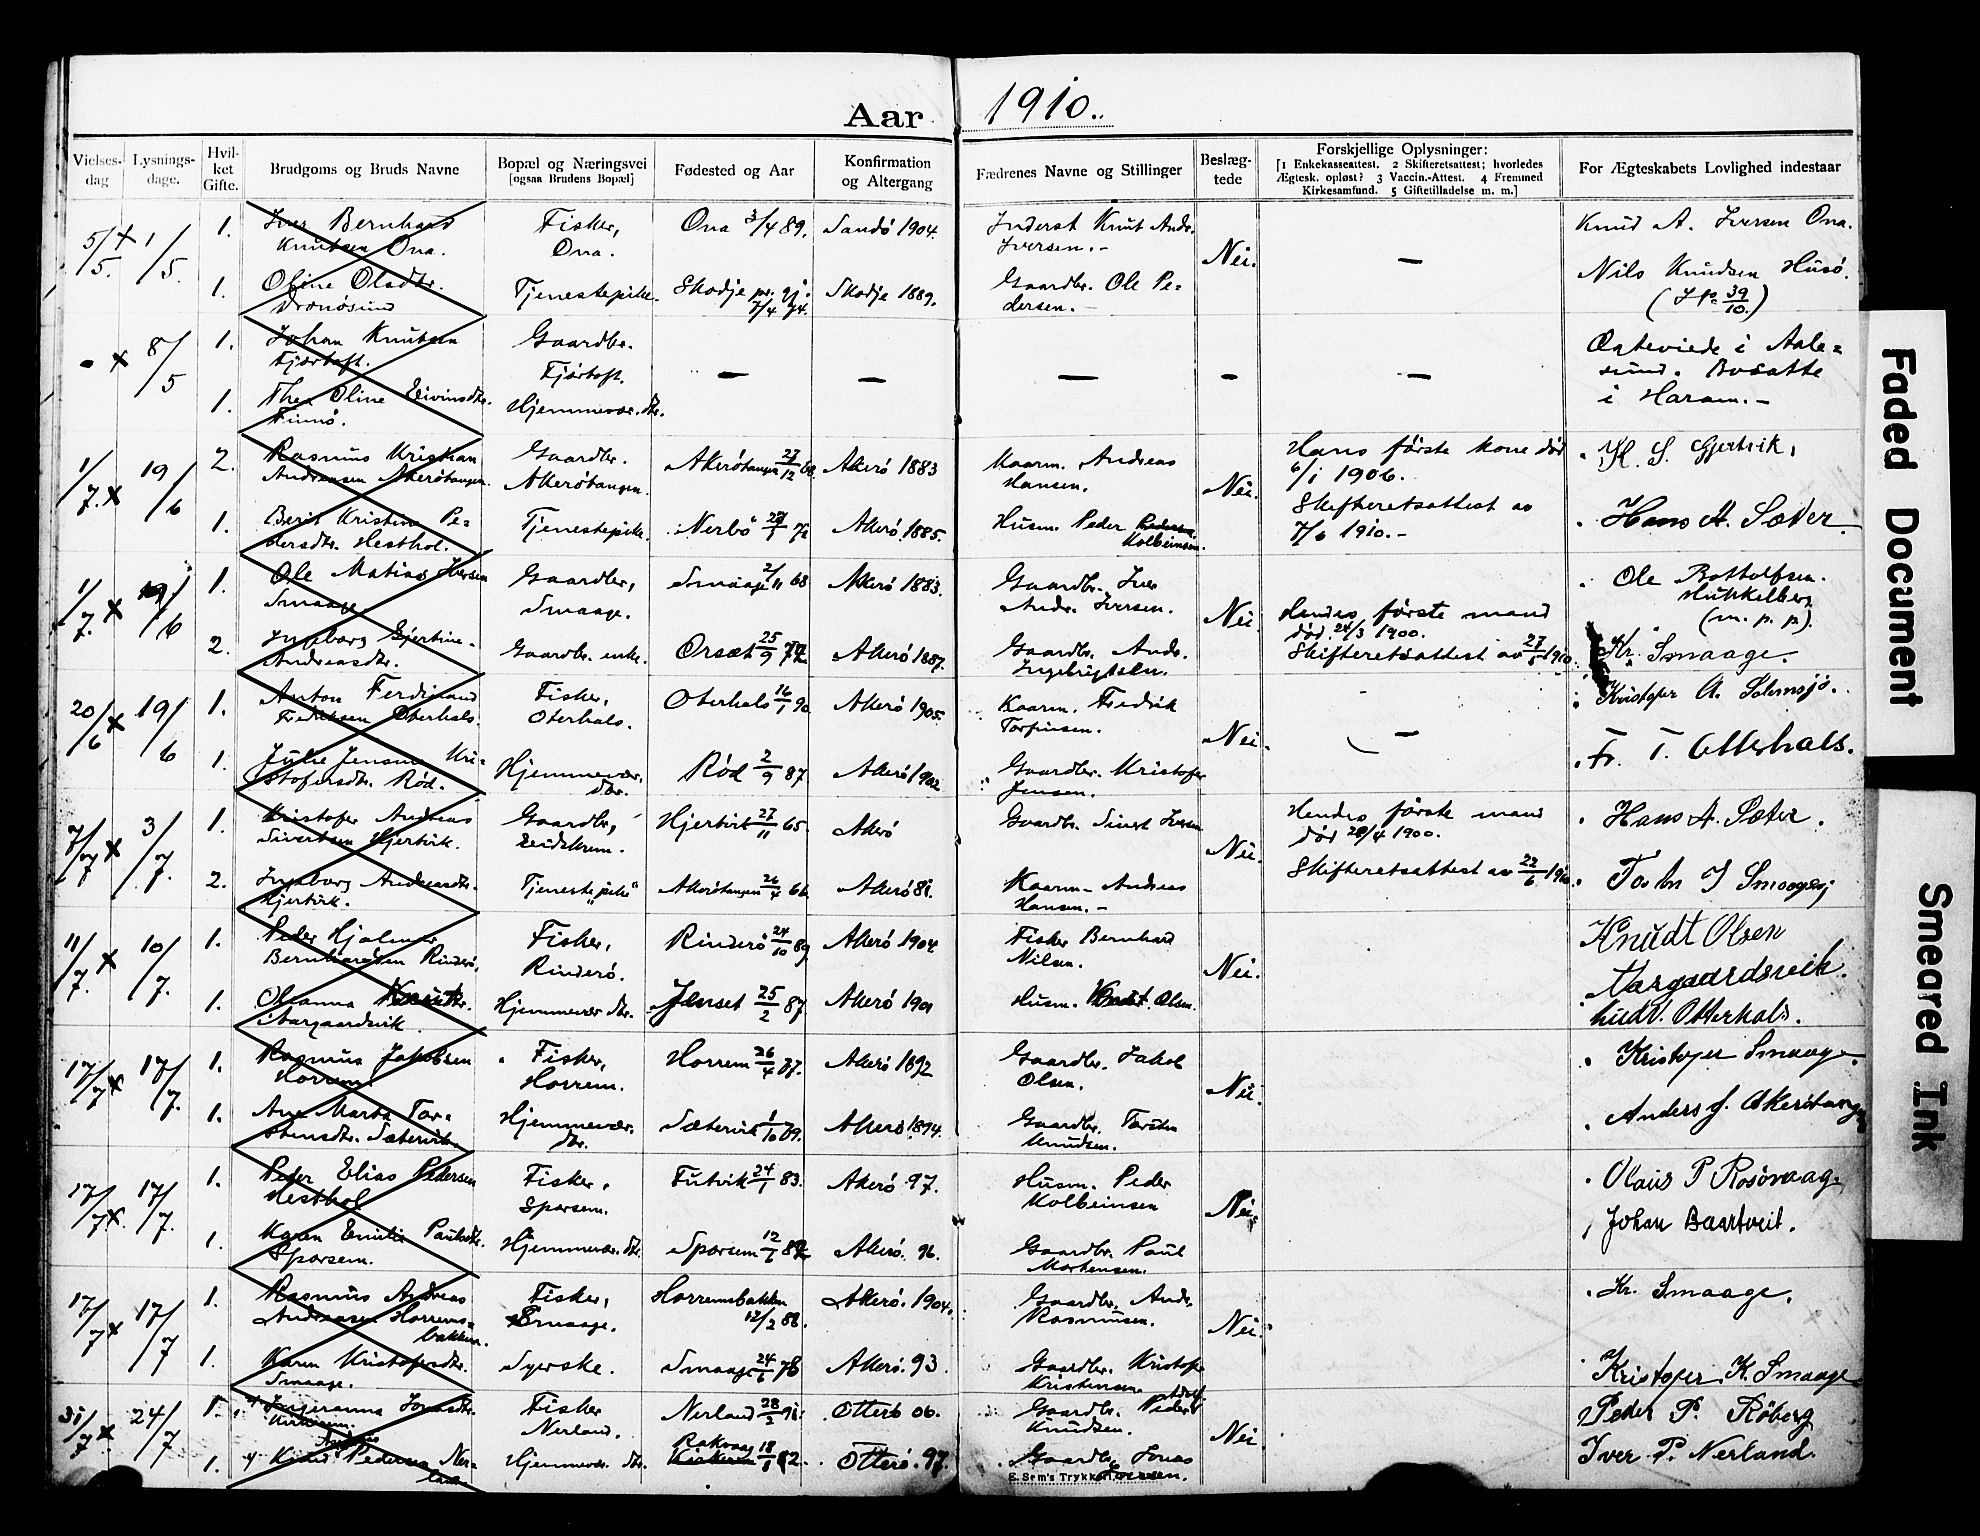 Aar 1910.
Vielses-dag
Lysnings-dage.
Hvil-ket Gifte.
Brudgoms og Bruds Navne
Bopæl og Næringsvei [ogsaa Brudens Bopæl]
Fødested og Aar
Konfirmation og Altergang
Fædrenes Navne og Stillinger
Beslæg-tede
Forskjellige Oplysninger: [1 Enkekasseattest. 2 Skifteretsattest; hvorledes Ægtesk. opløst? 3 Vaccin.-Attest. 4 Fremmed Kirkesamfund. 5 Giftetilladelse m. m.]
For Ægteskabets Lovlighed indestaar
5/5 1/5 1. Iver Bernhard Knutsen Ona. Fisker, Ona. Ona 3/4 89. Sandö 1904. Inderst Knut Andr. Iversen.- Nei. — Knud A. Iversen Ona.
1. Oline Olsdtr. Tjenestepike. Skodje 7/4 74. Skodje 1889. Gaardbr. Ole Pedersen.- Nils Knudsen Husö. (39/10)
8/5 1. Johan Knutsen Fjörtoft. Gaardbr. Fjörtoft. — — — — — Borteviede i Aalesund. Bosatte i Haram.-
1. Thea Oline Eivindsdtr. Finnö. Hjemmevær. dtr.
1/7. 19/6 2. Rasmus Kristian Andreassen Akerötangen. Gaardbr. Akerötangen. Akerötangen 27/12 68. Akerö 1883 Kaarm. Andreas Hansen. Nei. Hans förste kone död 6/1 1906. Skifteretsattest av 7/6 1910.- H. S. Gjertvik,
1. Berit Kristine Pedersdtr. Hesthol. Tjenestepike. Nerbö Akerö 1885. Husm. Peder Kolbeinsen. Hans A. Sæter
1/7. 19/6 1. Ole Matias Iversen Smaage. Gaardbr, Smaage. Smaage 2/11 68 Akerö 1883. Gaardbr. Iver Andr. Iversen. Nei. Hendes förste mand död 24/3 1900. Skifteretsattest av 27/5 1910. Ole Bottolfsen. Hukkelberg (m. p. p).
2. Ingeborg Gjertine Andreasdtr. Gaardbr. enke. Orset 25/9 72 Akerö 1887. Gaardbr. Andr. Ingebrigtsen. Kr. Smaage.
20/6 19/6 1. Anton Ferdinand Fredriksen Oterhals. Fisker, Oterhals. Oterhals 16/1 90 Akerö 1905. Kaarm. Fredrik Torfinsen. Nei. — Kristofer A. Solemsjö.
1. Julie Jensine Kristofersdtr. Röd. Hjemmevær. dtr. Röd 2/9 87 Akerö 1902 Gaardbr. Kristofer Jensen. Fr. T. Otterhals.
7/7 3/7. 1. Kristofer Andreas Sivertsen Hjertvik. Gaardbr, Hjertvik 27/11 65. Akerö Gaardbr. Sivert Iversen Nei. Hendes förste mand död 28/4 1900. Skifteretsattest av 22/6 1910. Hans A. Sæter.
2. Ingeborg Andreasdtr. Hjertvik. Tjenestepike Akerötangen 26/4 66. Akerö 81. Kaarm- Andreas Hansen.- Smaage
11/7. 10/7. 1. Peder Hjalmar Bernhardsen Rinderö. Fisker, Rinderö. Rinderö 24/10 89 Akerö 1904 Fisker Bernhard Nilsen. Nei. Knudt Olsen Aargaardsvik.
1. Olianna Knutsdtr. Aargaardsvik. Hjemmevær. dtr. Jenset 25/2 87 Akerö 1901 Husm. Knut Olsen. Ludv. Otterhals.
17/7 17/7. 1. Rasmus Jakobsen Horrem. Fisker, Horrem. Horrem 26/4 77. Akerö 1892 Gaardbr. Jakob Olsen. Nei. Kristofer Smaage.
1. Ane Marta Torstensdtr. Sætervik. Hjemmevær. dtr. Sætervik 1/10 79. Akerö 1894. Gaardbr. Torsten Knudsen. Anders J. Akerötangen
17/7. 17/7. 1. Peder Elias Pedersen Hesthol Fisker, Sporsem. Futvik 24/1 83. Akerö 97. Husm. Peder Kolbeinsen Nei. Olaus P Rosövaag.
1. Karen Emilie Paulsdtr. Sporsem. Hjemmevær. dtr. Sporsem 12/1 82 Akerö. 96. Gaardbr. Paul Mortensen. Johan Baartveit.
17/7 17/7 1. Rasmus Andreas Andreassen Horremsbakken. Fisker, Smaage. Horremsbakken 12/2 88. Akerö. 1904. Gaardbr. Andr. Rasmussen. Nei. Kr. Smaage.
1. Karen Kristofersdtr. Smaage. Syerske. Smaage 24/6 78 Akerö. 93. Gaardbr. Kristofer Kristensen Kristofer K. Smaage
31/7. 24/7 1. Ingeranna Jonasdtr. Fisker Nerland. Nerland 28/2 91. Otterö 06. Gaardbr. Peder Knudsen. Nei. Peder P. Röberg
1. Knud Pedersen Nerland Hjemmevær. dtr. Rakvaag 18/8 82. Otterö. 97. Gaardbr. Jonas Iversen. Iver P. Nerland.
E. Sem's Trykkeri
Faded Document
Smeared Ink